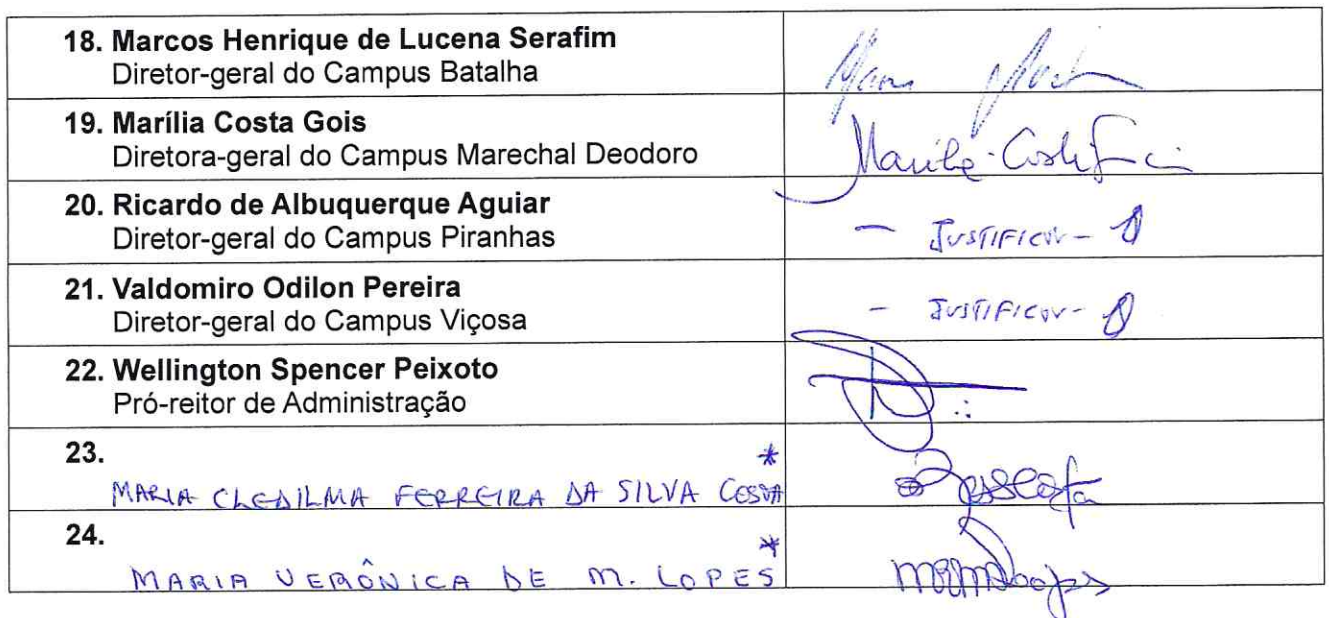 18. Marcos Henrique de Lucena Serafim
Diretor-geral do Campus Batalha
19. Marília Costa Gois
Diretora-geral do Campus Marechal Deodoro
20. Ricardo de Albuquerque Aguiar
Diretor-geral do Campus Piranhas
- JUSTIFICOU -
21. Valdomiro Odilon Pereira
Diretor-geral do Campus Viçosa
- JUSTIFICOU -
22. Wellington Spencer Peixoto
Pró-reitor de Administração
23. *
MARIA CLEDILMA FERREIRA DA SILVA COSTA
24. *
MARIA VERÔNICA DE M. LOPES